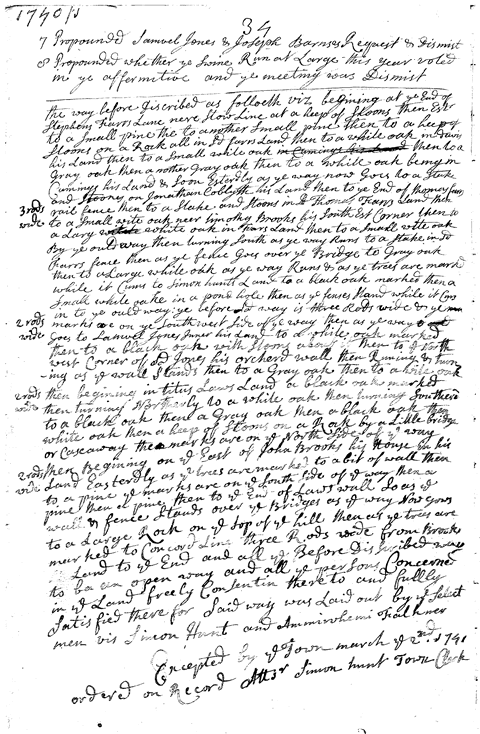 1740/1
34
7 Propounded Samuel Jones & Joseph Barnes Request & Dismist
8 Propounded whether ye Swine Run at Large this year voted
in ye affermitive and ye meeting was Dismist
the way before Discribed as followeth viz begining at ye End of
Stephens Farrs Lane nere Stow Line at a heep of Stoons then Estr
to a Small pine the to another Small pine then to a heep of
Stoons on a Rock all in Sd farrs Land then to a white oak in
his Land then to a Small white oak then to a
Gray oak then a nother Gray oak then to a white oak being in
Cumings his Land & Soon Esterly as ye way now Goes to a Stake
and Stoons on Jonathan his Land then to ye End of thomas farrs
3 rods wide
rail fence then to a Stake and Stoons in Sd Thomas Farrs Land then
to a Small wite oak neer timothy Brooks his South Est Corner then to
a Larg white oak in Farrs Land then to a Small wite oak
By ye ould way then turning South as ye way Runs to a Stake in Sd
Farrs fence then as ye fence Goes over ye Bridge to Gray oak
then to a Large white oak as ye way Runs & as ye trees are markd
while it Cums to Simon hunts Land to a black oak marked then a
Small white oake in a pond hole then as ye fences Stand while it Cums
in to ye ould way: ye before Sd way is three Rods wide & ye
2 rods wide
marks are on ye Southwest Side of ye way then as ye way
Goes to Samuel Jones Juner his Land to a white oak marked
then to a black oak with Stoons about it then to ye North
west Corner of Sd Jones his orcherd wall then Runing & turn
ing as ye wall Stands then to a Gray oak then to a white oak
2 rods wide
then begining in titus Laws Land a black oak marked
then turning Northerly to a white oak then turning Southere
to a black oak then a Gray oak then a black oak then
white oak then a heep of Stoons on a Rock by a Little Bridge
or Caseaway the marks are on ye North Side of ye way
2 rods wide
then Begining on ye East of John Brooks his House in his
Land Easterly as ye trees are marked to a bit of wall then
to a pine ye marks are on ye South Side of ye way then a
pine then a pine then to ye End of Laws wall So as ye
wall & fence Stands over ye Bridges as ye way Now Gows
to a Large Rock on ye top of ye hill then as ye trees are
marked to Concord Line three Rods wide from Brooks
Land to ye End and all ye Before Discribed ways
to be an open way and all ye persons Concerned
in ye Land freely Consentin there to and fully
Satisfied there for Said way was Laid out by ye Select
men vis Simon Hunt and Ammiruhemi Faulkner
Excepted by ye Town march ye 2nd 1741
ordered on Record Attsr Simon hunt Town Clerk